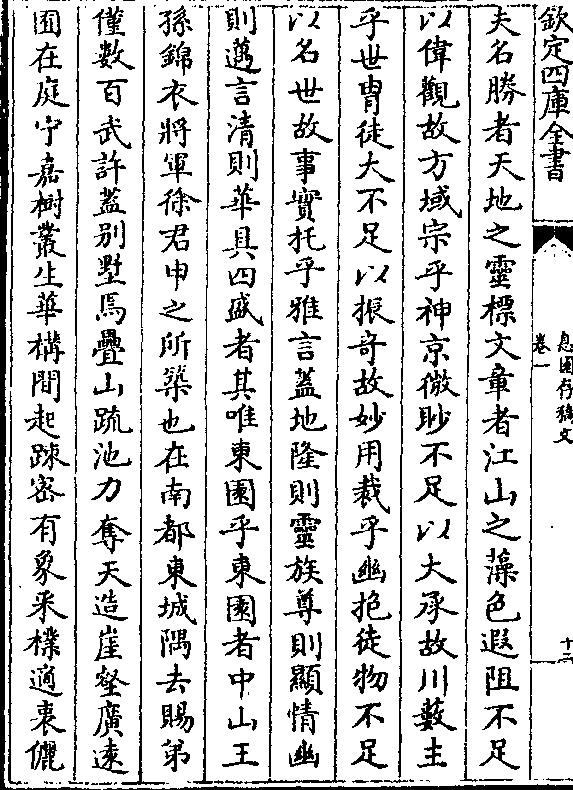 欽定四庫全書
息園存稿文
卷一
十二
夫名勝者天地之靈標文章者江山之藻色遐阻不足
以偉觀故方域宗乎神京微眇不足以大承故川藪主
乎世胄徒大不足以振奇故妙用裁乎幽抱徒物不足
以名世故事實托乎雅言蓋地隆則靈族尊則顯情幽
則邁言清則華具四盛者其唯東園乎東園者中山王
孫錦衣將軍徐君申之所築也在南都東城隅去賜第
僅數百武許蓋别墅焉疊山疏池力奪天造崖壑廣逺
囿在庭宁嘉樹叢生華構間起踈宻有象采樸適衷儷